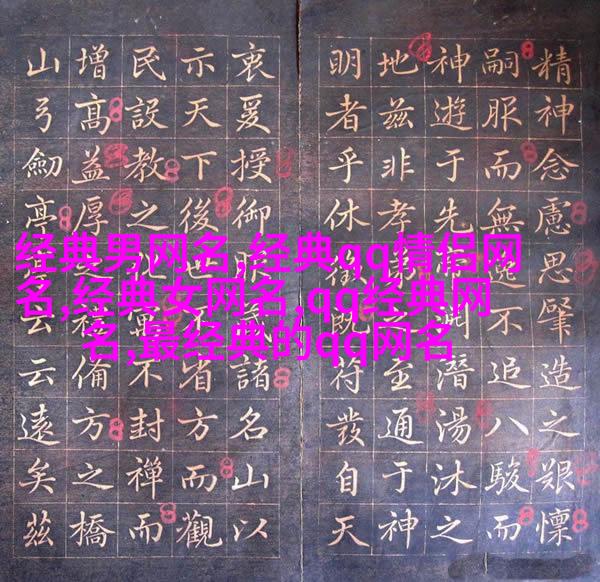 精神念慮思肇造之艱懍
嗣服而無不追八駿而
神遊于先潛湯沐之
地茲非孝至通于神
明者乎休徵既符發自天
衷爰授御服諸名山以
示天下後世不省方而觀
民設教之化不封禪而
增高益厚方之橋
山弓劒亭云云遠矣茲
经典男网名,经典qq情侣网
名,经典女网名,qq经典网
名,最经典的qq网名